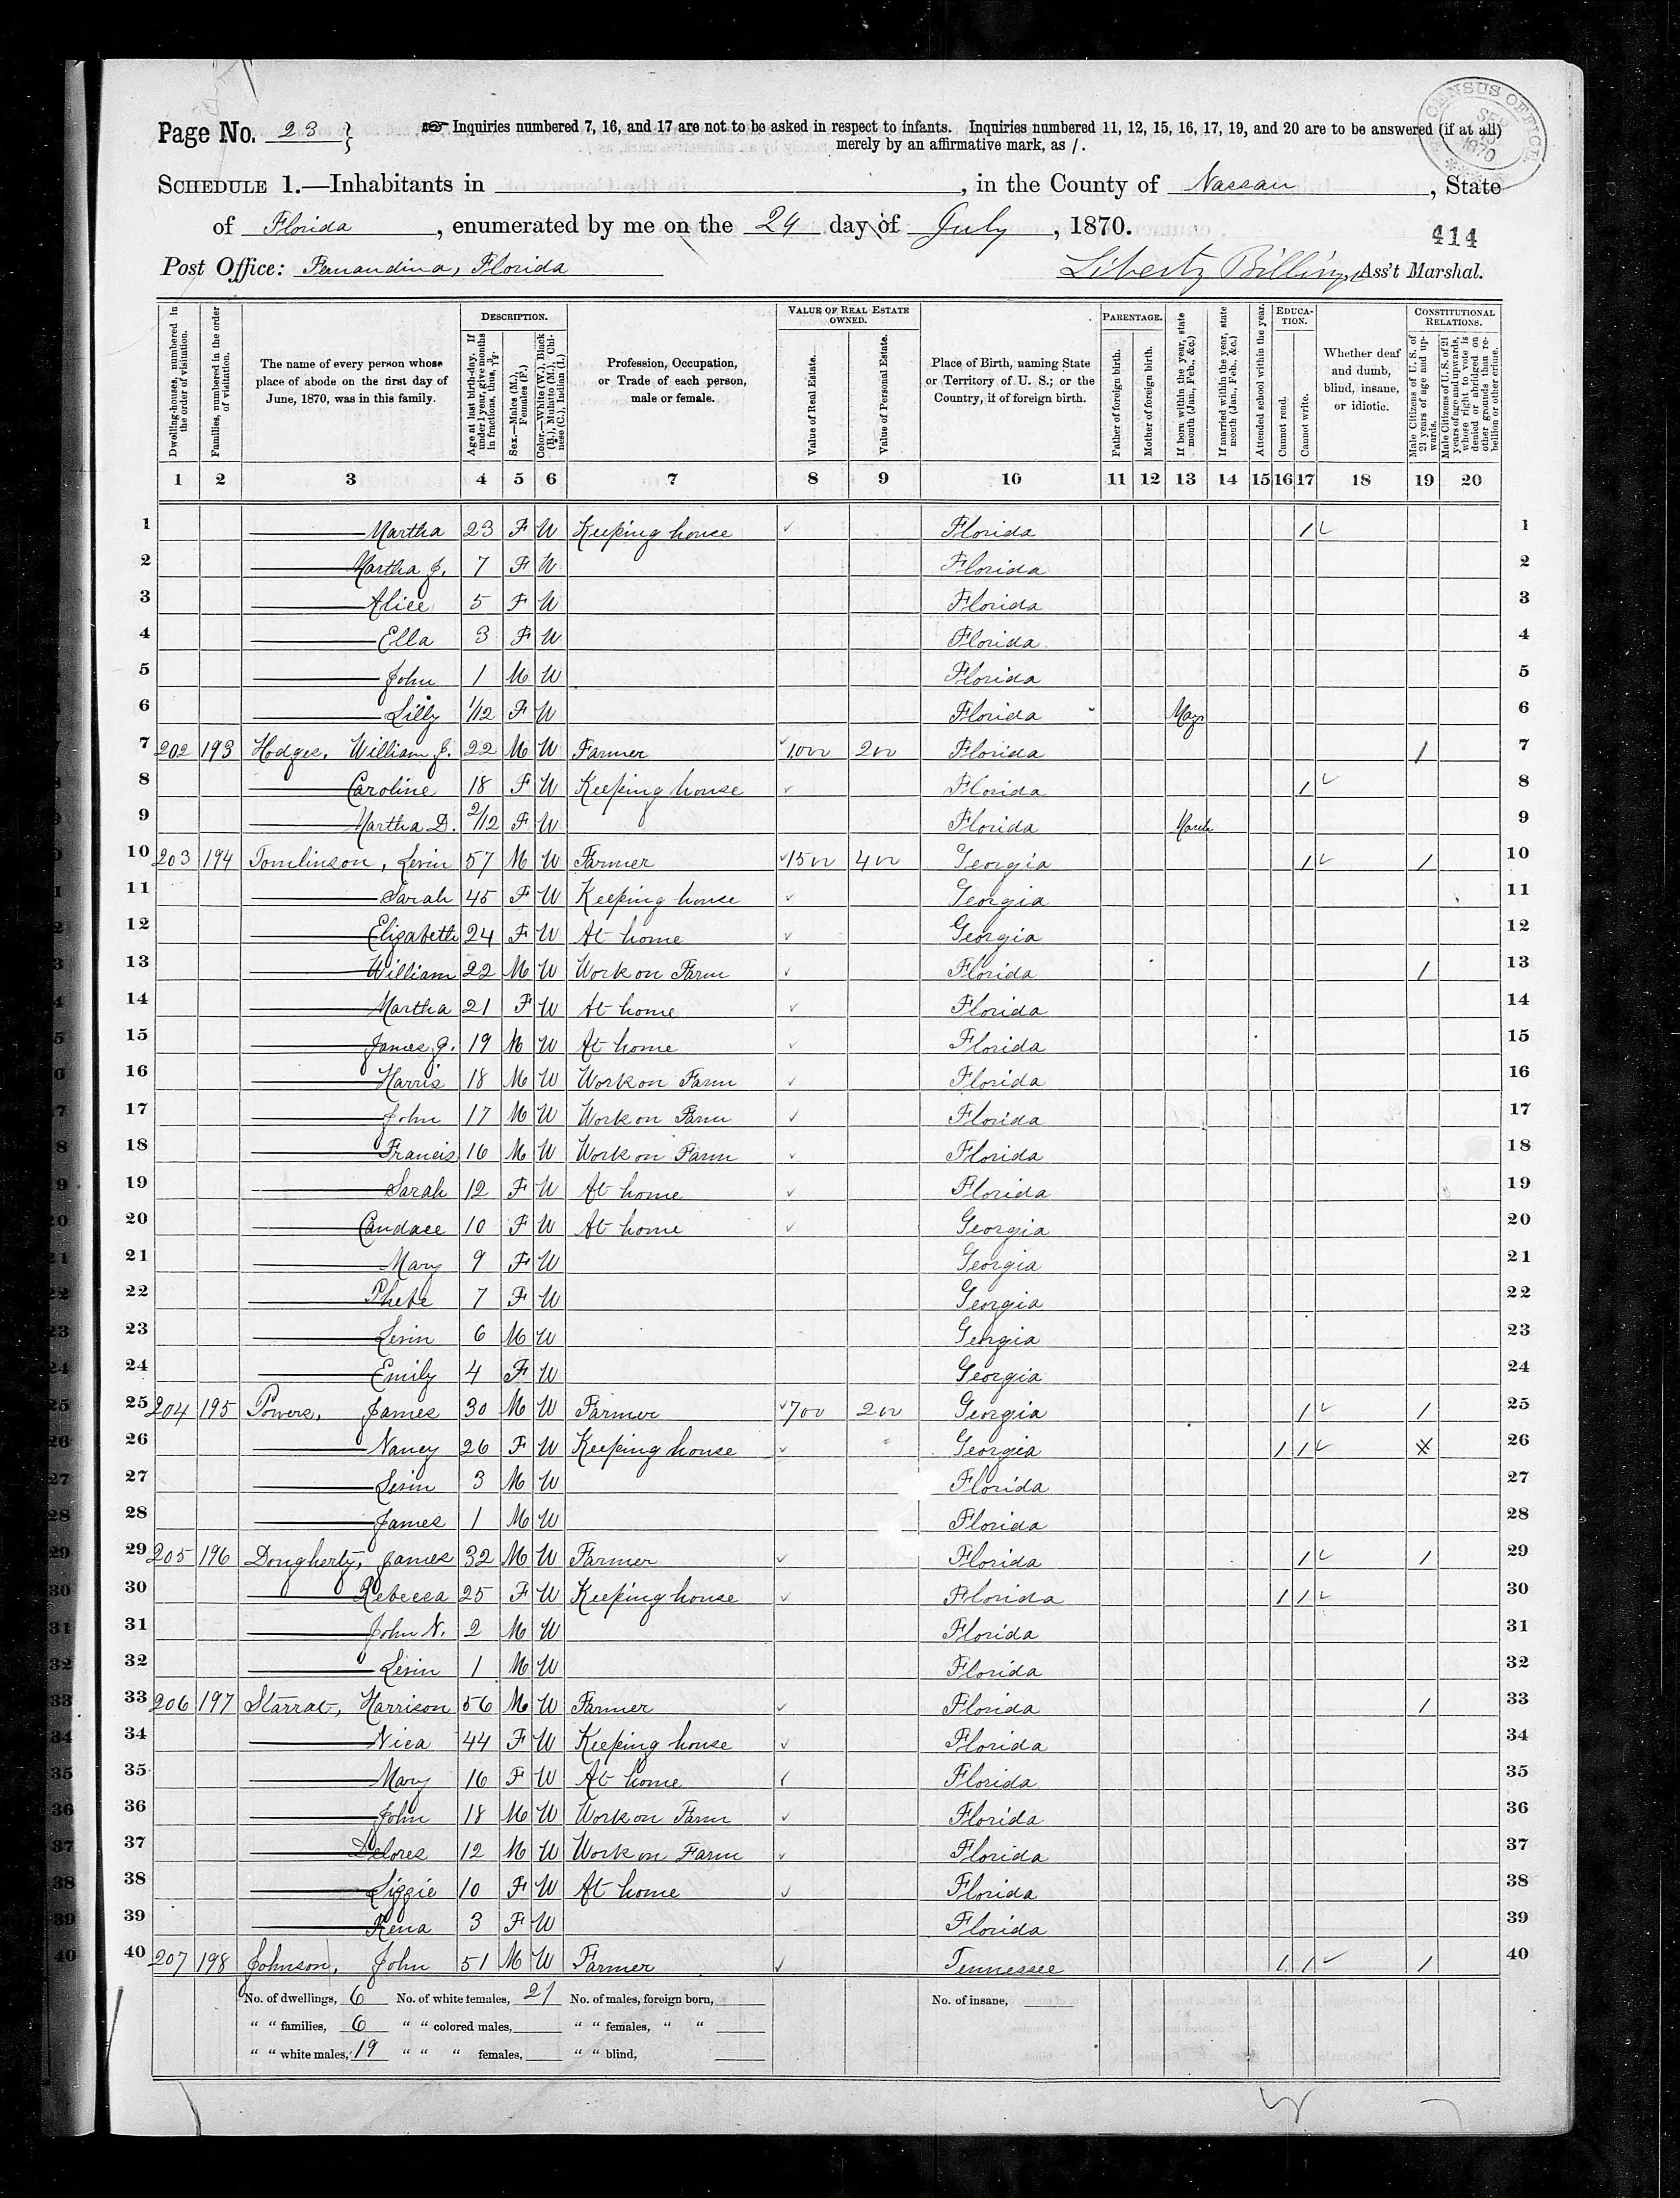 Page No. 23 } ☞ Inquiries numbered 7, 16, and 17 are not to be asked in respect to infants. Inquiries numbered 11, 12, 15, 16, 17, 19, and 20 are to be answered (if at all)
merely by an affirmative mark, as /.
CENSUS OFFICE 1870
SCHEDULE 1.—Inhabitants in , in the County of Nassau , State
of Florida , enumerated by me on the 24 day of July , 1870.
414
Post Office: Fernandina, Florida Liberty Billings, Ass't Marshal.
Dwelling-houses, numbered in the order of visitation.
Families, numbered in the order of visitation.
The name of every person whose place of abode on the first day of June, 1870, was in this family.
DESCRIPTION.
Age at last birth-day. If under 1 year, give months in fractions, thus, 3/12.
Sex.—Males (M.), Females (F.)
Color.—White (W.), Black (B.), Mulatto (M.), Chinese (C.), Indian (I.)
Profession, Occupation, or Trade of each person, male or female.
VALUE OF REAL ESTATE OWNED.
Value of Real Estate.
Value of Personal Estate.
Place of Birth, naming State or Territory of U. S.; or the Country, if of foreign birth.
PARENTAGE.
Father of foreign birth.
Mother of foreign birth.
If born within the year, state month (Jan., Feb., &c.)
If married within the year, state month (Jan., Feb., &c.)
Attended school within the year.
EDUCATION.
Cannot read.
Cannot write.
Whether deaf and dumb, blind, insane, or idiotic.
CONSTITUTIONAL RELATIONS.
Male Citizens of U. S. of 21 years of age and upwards.
Male Citizens of U. S. of 21 years of age and upwards, whose right to vote is denied or abridged on other grounds than rebellion or other crime.
1 2 3 4 5 6 7 8 9 10 11 12 13 14 15 16 17 18 19 20
1 —— Martha 23 F W Keeping house ✓ Florida / ✓ 1
2 —— Martha J. 7 F W Florida 2
3 —— Alice 5 F W Florida 3
4 —— Ella 3 F W Florida 4
5 —— John 1 M W Florida 5
6 —— Lilly 1/12 F W Florida May 6
7 202 193 Hodges, William J. 22 M W Farmer ✓ 1000 200 Florida / 7
8 —— Caroline 18 F W Keeping house ✓ Florida / ✓ 8
9 —— Martha D. 2/12 F W Florida March 9
10 203 194 Tomlinson, Levin 57 M W Farmer ✓ 1500 400 Georgia / ✓ / 10
11 —— Sarah 45 F W Keeping house ✓ Georgia 11
12 —— Elizabeth 24 F W At home ✓ Georgia 12
13 —— William 22 M W Work on Farm ✓ Florida / 13
14 —— Martha 21 F W At home ✓ Florida 14
15 —— James J. 19 M W At home ✓ Florida 15
16 —— Harris 18 M W Work on Farm ✓ Florida 16
17 —— John 17 M W Work on Farm ✓ Florida 17
18 —— Francis 16 M W Work on Farm ✓ Florida 18
19 —— Sarah 12 F W At home ✓ Florida 19
20 —— Candace 10 F W At home ✓ Georgia 20
21 —— Mary 9 F W Georgia 21
22 —— Phebe 7 F W Georgia 22
23 —— Levin 6 M W Georgia 23
24 —— Emily 4 F W Georgia 24
25 204 195 Powers, James 30 M W Farmer ✓ 700 200 Georgia / ✓ / 25
26 —— Nancy 26 F W Keeping house ✓ Georgia / / ✓ 26
27 —— Levin 3 M W Florida 27
28 —— James 1 M W Florida 28
29 205 196 Dougherty, James 32 M W Farmer ✓ Florida / ✓ / 29
30 —— Rebecca 25 F W Keeping house ✓ Florida / / ✓ 30
31 —— John N. 2 M W Florida 31
32 —— Levin 1 M W Florida 32
33 206 197 Starrat, Harrison 56 M W Farmer ✓ Florida / 33
34 —— Nica 44 F W Keeping house ✓ Florida 34
35 —— Mary 16 F W At home Florida 35
36 —— John 18 M W Work on Farm ✓ Florida 36
37 —— Delores 12 M W Work on Farm ✓ Florida 37
38 —— Lizzie 10 F W At home ✓ Florida 38
39 —— Rena 3 F W Florida 39
40 207 198 Johnson, John 51 M W Farmer ✓ Tennessee / / ✓ / 40
No. of dwellings, 6 No. of white females, 21 No. of males, foreign born, No. of insane,
" " families, 6 " " colored males, " " females, " "
" " white males, 19 " " " females, " " blind,